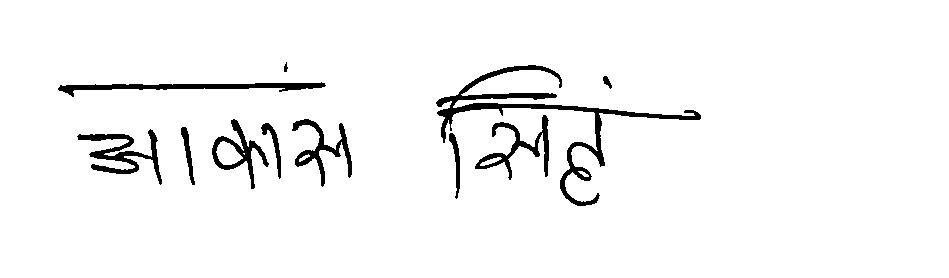 आकांस सिहं